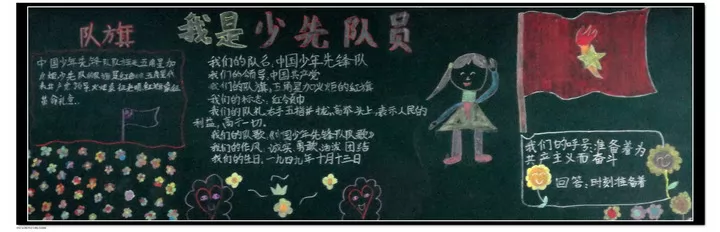 我是少先队员
队旗
中国少年先锋队队旗
我们的队名：中国少年先锋队
我们的领导：中国共产党
我们的队旗：五角星加火炬的红旗
我们的标志：红领巾
我们的队礼：右手五指并拢，高举头上，表示人民的
利益，高于一切。
我们的队歌：《中国少年先锋队队歌》
我们的作风：诚实 勇敢 活泼 团结
我们的生日：一九四九年十月十三日
我们的呼号：准备着为
共产主义而奋斗
回答：时刻准备着